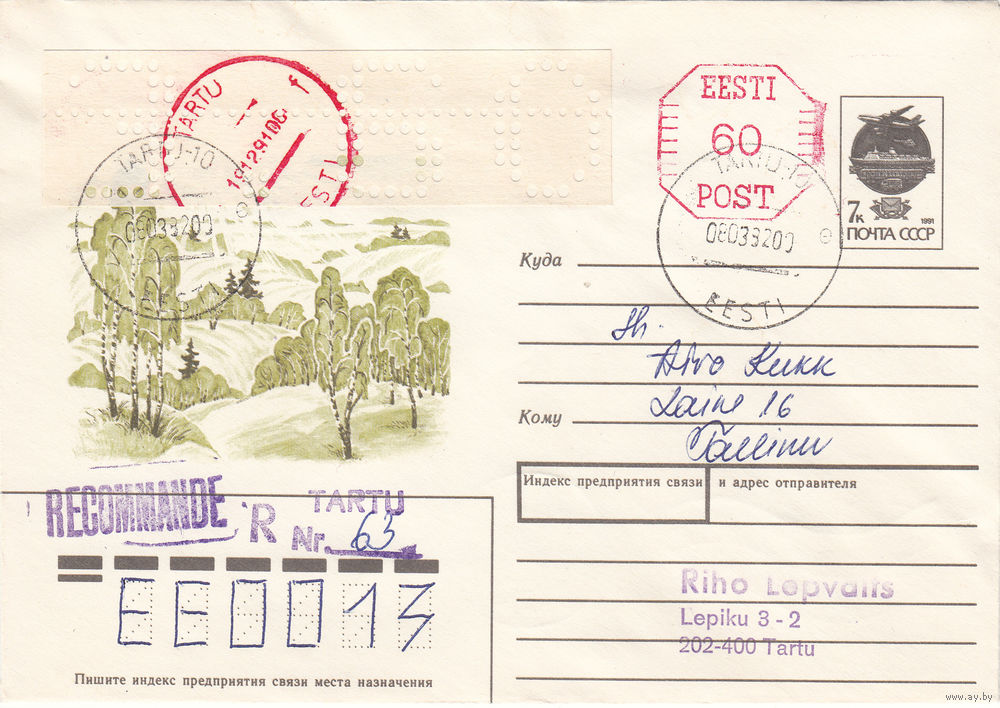 TARTU
181291
EESTI
EESTI
60
POST
TARTU-10
08039200
e
EESTI
TARTU-10
08039200
e
EESTI
7к
1991
ПОЧТА СССР
Куда
Hr.
Aivo Kukk
Laine 16
Кому
Tallinn
Индекс предприятия связи и адрес отправителя
RECOMMANDE
R
TARTU
Nr. 63
EE0013
Riho Lepvalts
Lepiku 3 - 2
202-400 Tartu
Пишите индекс предприятия связи места назначения
www.ay.by